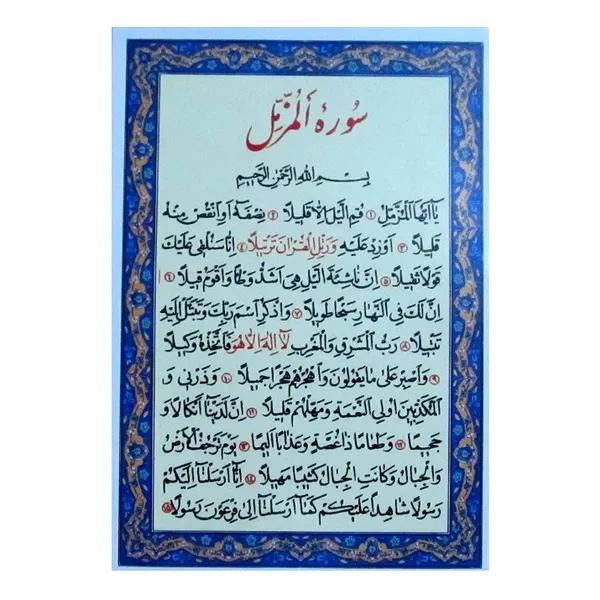 سُورَةُ اَلْمُزَّمِّل
بِسْمِ اللهِ الرَّحْمٰنِ الرَّحِيمِ
يَا اَيُّهَا الْمُزَّمِّلُ ۱ قُمِ الَّيْلَ اِلَّا قَلِيلًا ۲ نِصْفَهُ اَوِ انْقُصْ مِنْهُ
قَلِيلًا ۳ اَوْ زِدْ عَلَيْهِ وَرَتِّلِ الْقُرْاٰنَ تَرْتِيلًا ۴ اِنَّا سَنُلْقِي عَلَيْكَ
قَوْلًا ثَقِيلًا ۵ اِنَّ نَاشِئَةَ الَّيْلِ هِيَ اَشَدُّ وَطْئًا وَاَقْوَمُ قِيلًا ۶
اِنَّ لَكَ فِي النَّهَارِ سَبْحًا طَوِيلًا ۷ وَاذْكُرِ اسْمَ رَبِّكَ وَتَبَتَّلْ اِلَيْهِ
تَبْتِيلًا ۸ رَبُّ الْمَشْرِقِ وَالْمَغْرِبِ لَا اِلٰهَ اِلَّا هُوَ فَاتَّخِذْهُ وَكِيلًا
۹ وَاصْبِرْ عَلٰى مَا يَقُولُونَ وَاهْجُرْهُمْ هَجْرًا جَمِيلًا ۱۰ وَذَرْنِي وَ
الْمُكَذِّبِينَ اُولِي النَّعْمَةِ وَمَهِّلْهُمْ قَلِيلًا ۱۱ اِنَّ لَدَيْنَا اَنْكَالًا وَ
جَحِيمًا ۱۲ وَطَعَامًا ذَا غُصَّةٍ وَعَذَابًا اَلِيمًا ۱۳ يَوْمَ تَرْجُفُ الْاَرْضُ
وَالْجِبَالُ وَكَانَتِ الْجِبَالُ كَثِيبًا مَهِيلًا ۱۴ اِنَّا اَرْسَلْنَا اِلَيْكُمْ
رَسُولًا شَاهِدًا عَلَيْكُمْ كَمَا اَرْسَلْنَا اِلٰى فِرْعَوْنَ رَسُولًا ۱۵